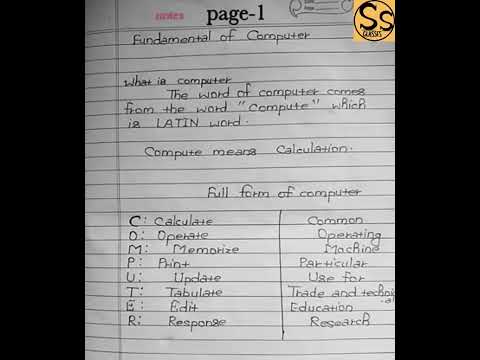 notes page-1
SS
CLASSES
Fundamental of Computer
What is computer
The word of computer comes
from the word "Compute" which
is LATIN word.
Compute means Calculation.
Full form of computer
C: Calculate Common
O: Operate Operating
M: Memorize Machine
P: Print Particular
U: Update Use for
T: Tabulate Trade and technical
E: Edit Education
R: Response Research